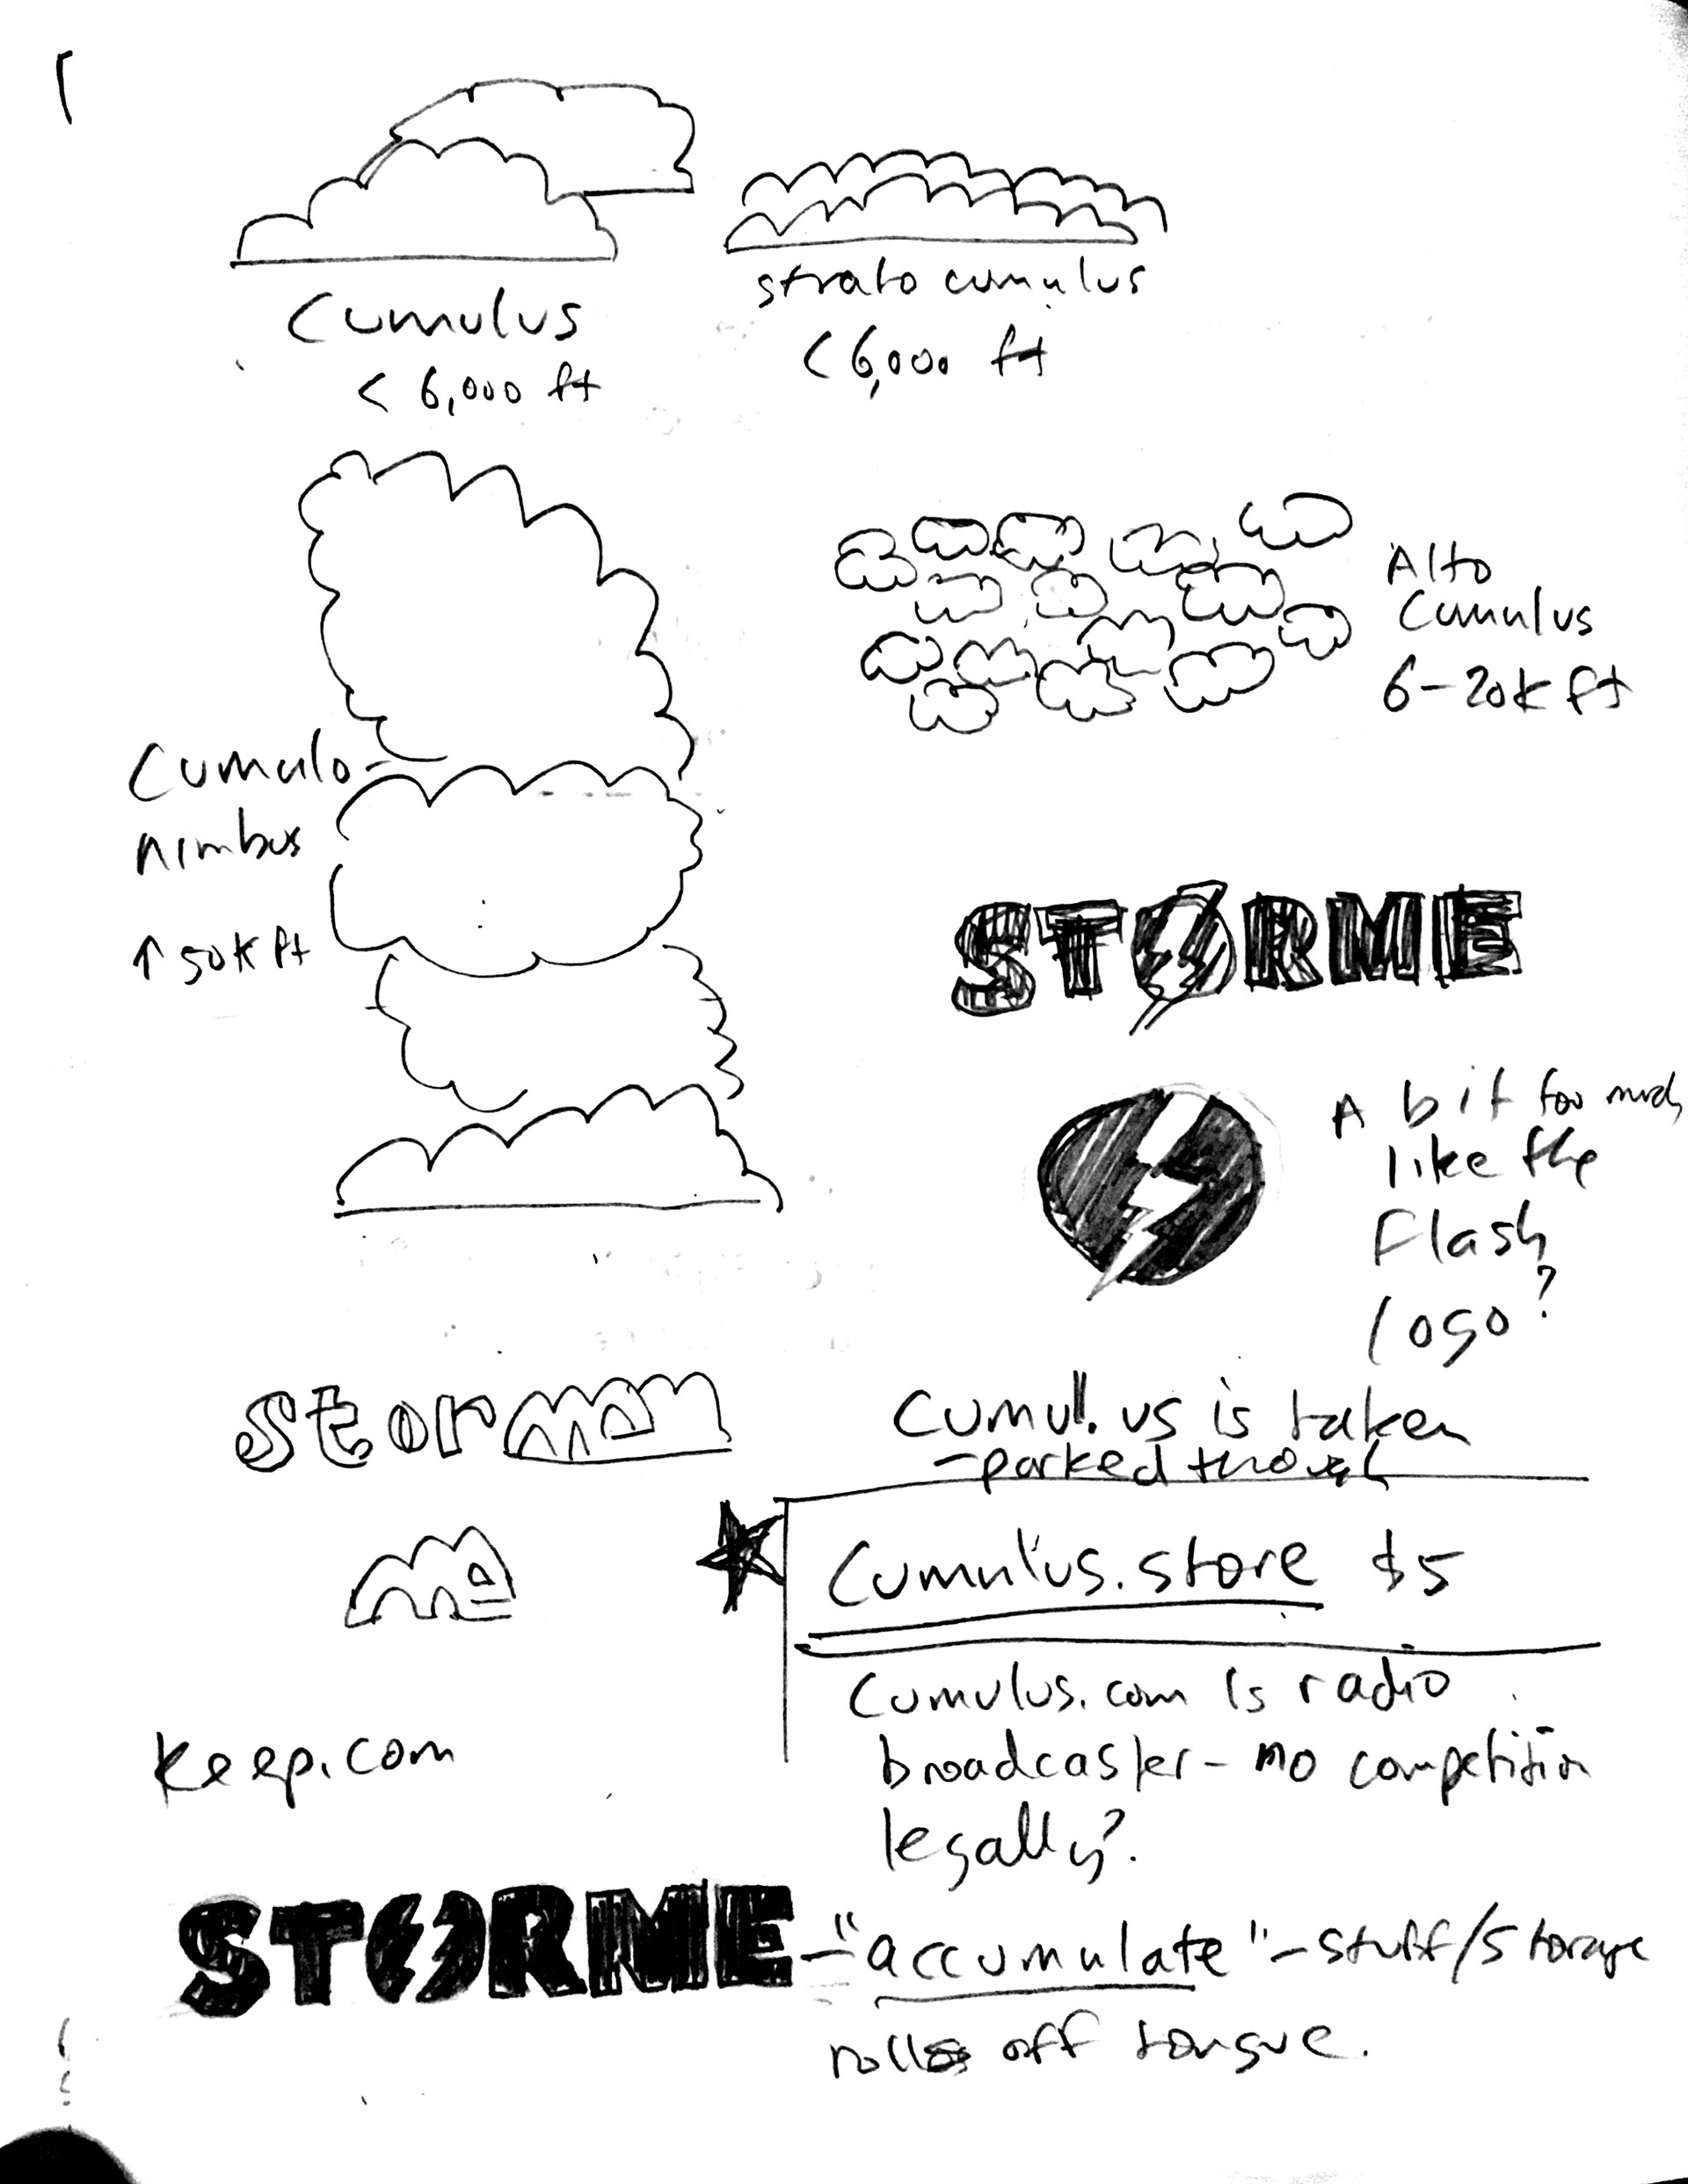 Cumulus
< 6,000 ft
strato cumulus
< 6,000 ft
Alto
Cumulus
6-20k ft
Cumulo-
nimbus
↑ 50k ft
STORME
A bit too much
like the
Flash
logo?
storme
me
Cumul.us is taken
-parked though
Cumulus.store $5
Cumulus.com is radio
broadcaster - no competition
legally?
keep.com
STORME - "accumulate" - stuff/storage
rolls off tongue.